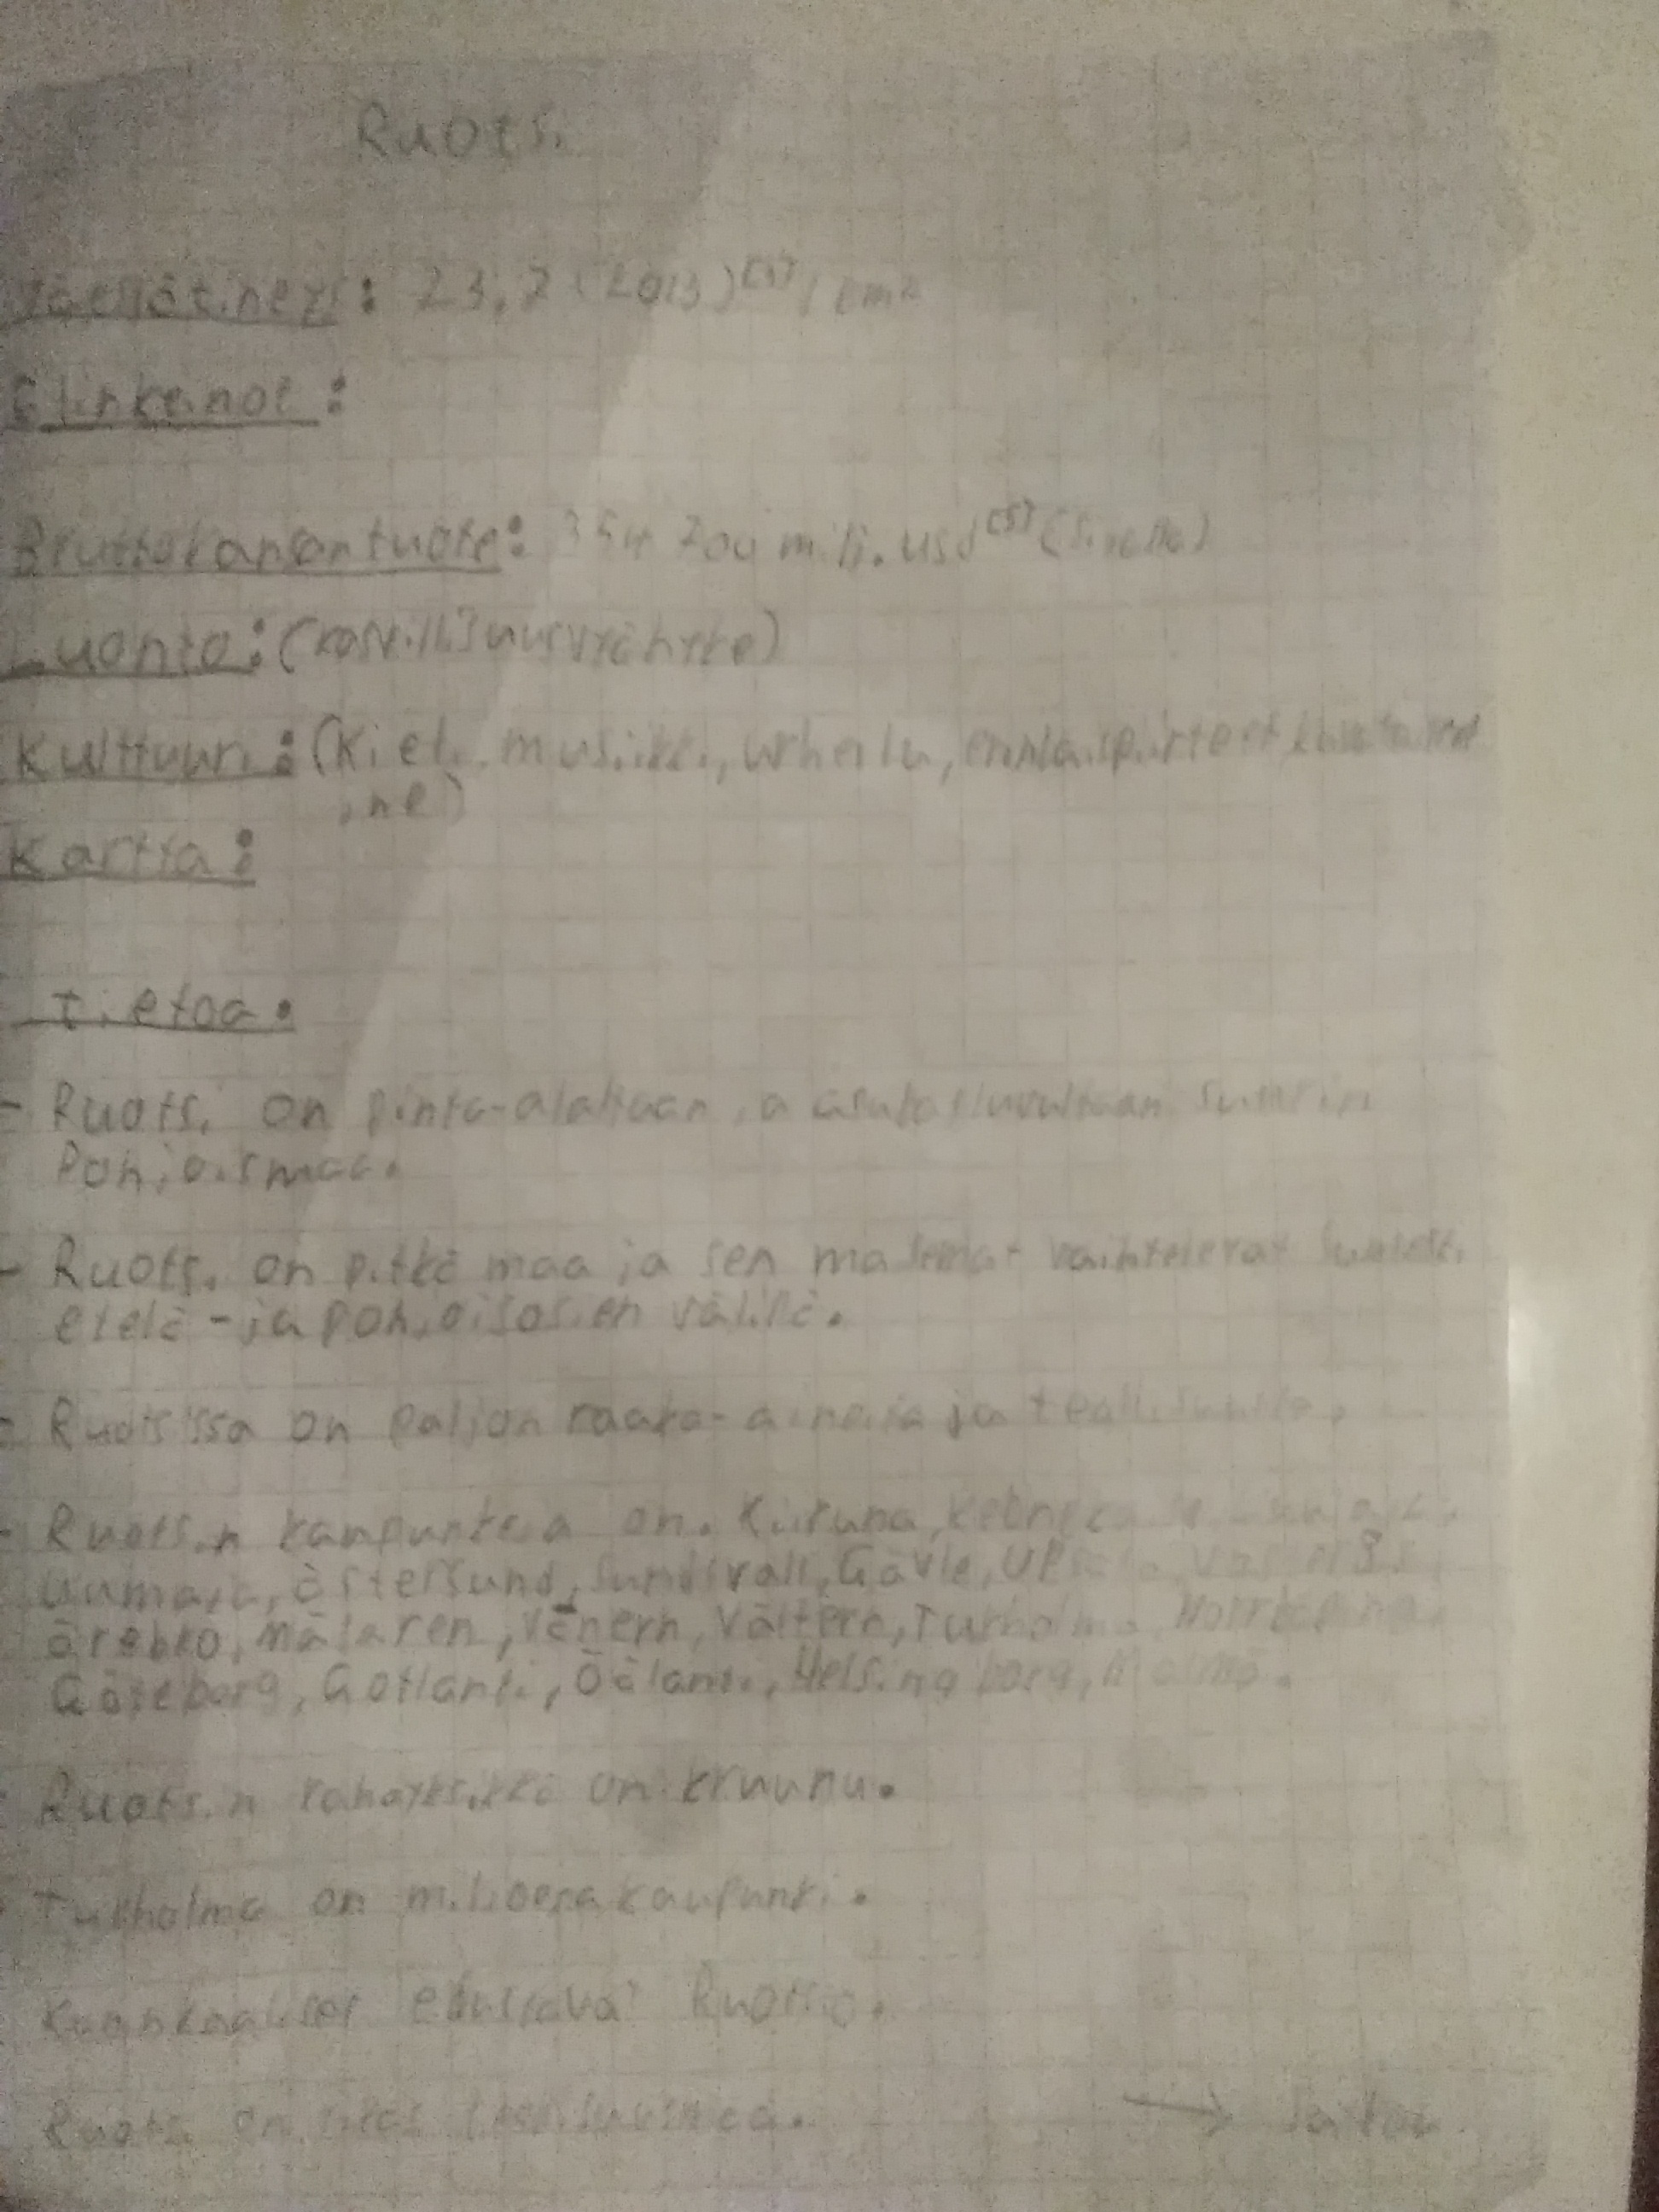 Ruotsi
Väestötiheys: 23,7 (2013)[3] / km²
Elinkeinot:
Bruttokansantuote: 354 700 milj. usd[5] (sinella)
Luonto: (kasvillisuusvyöhyke)
Kulttuuri: (Kieli, musiikki, urheilu, erinlaispiirteet
, ne)
Kartta:
Tietoa:
- Ruotsi on pinta-alaltaan ja asukasluvultaan suurin
Pohjoismaa.
- Ruotsi on pitkä maa ja sen maisemat vaihtelevat suuresti
etelä- ja pohjoisosien välillä.
- Ruotsissa on paljon raaka-aineita ja teollisuutta.
- Ruotsin kaupunkeja on. Kiiruna, Kebnekaise,
Uumaja, Östersund, Sundsvall, Gävle, Upsala, Västerås,
Örebro, Mälaren, Vänern, Vättern, Tukholma, Norrköping,
Göteborg, Gotlanti, Öölanti, Helsingborg, Malmö.
Ruotsin rahayksikkö on kruunu.
Tukholma on miljoonakaupunki.
Kuninkaaliset edustavat Ruotsia.
Ruotsi on
→